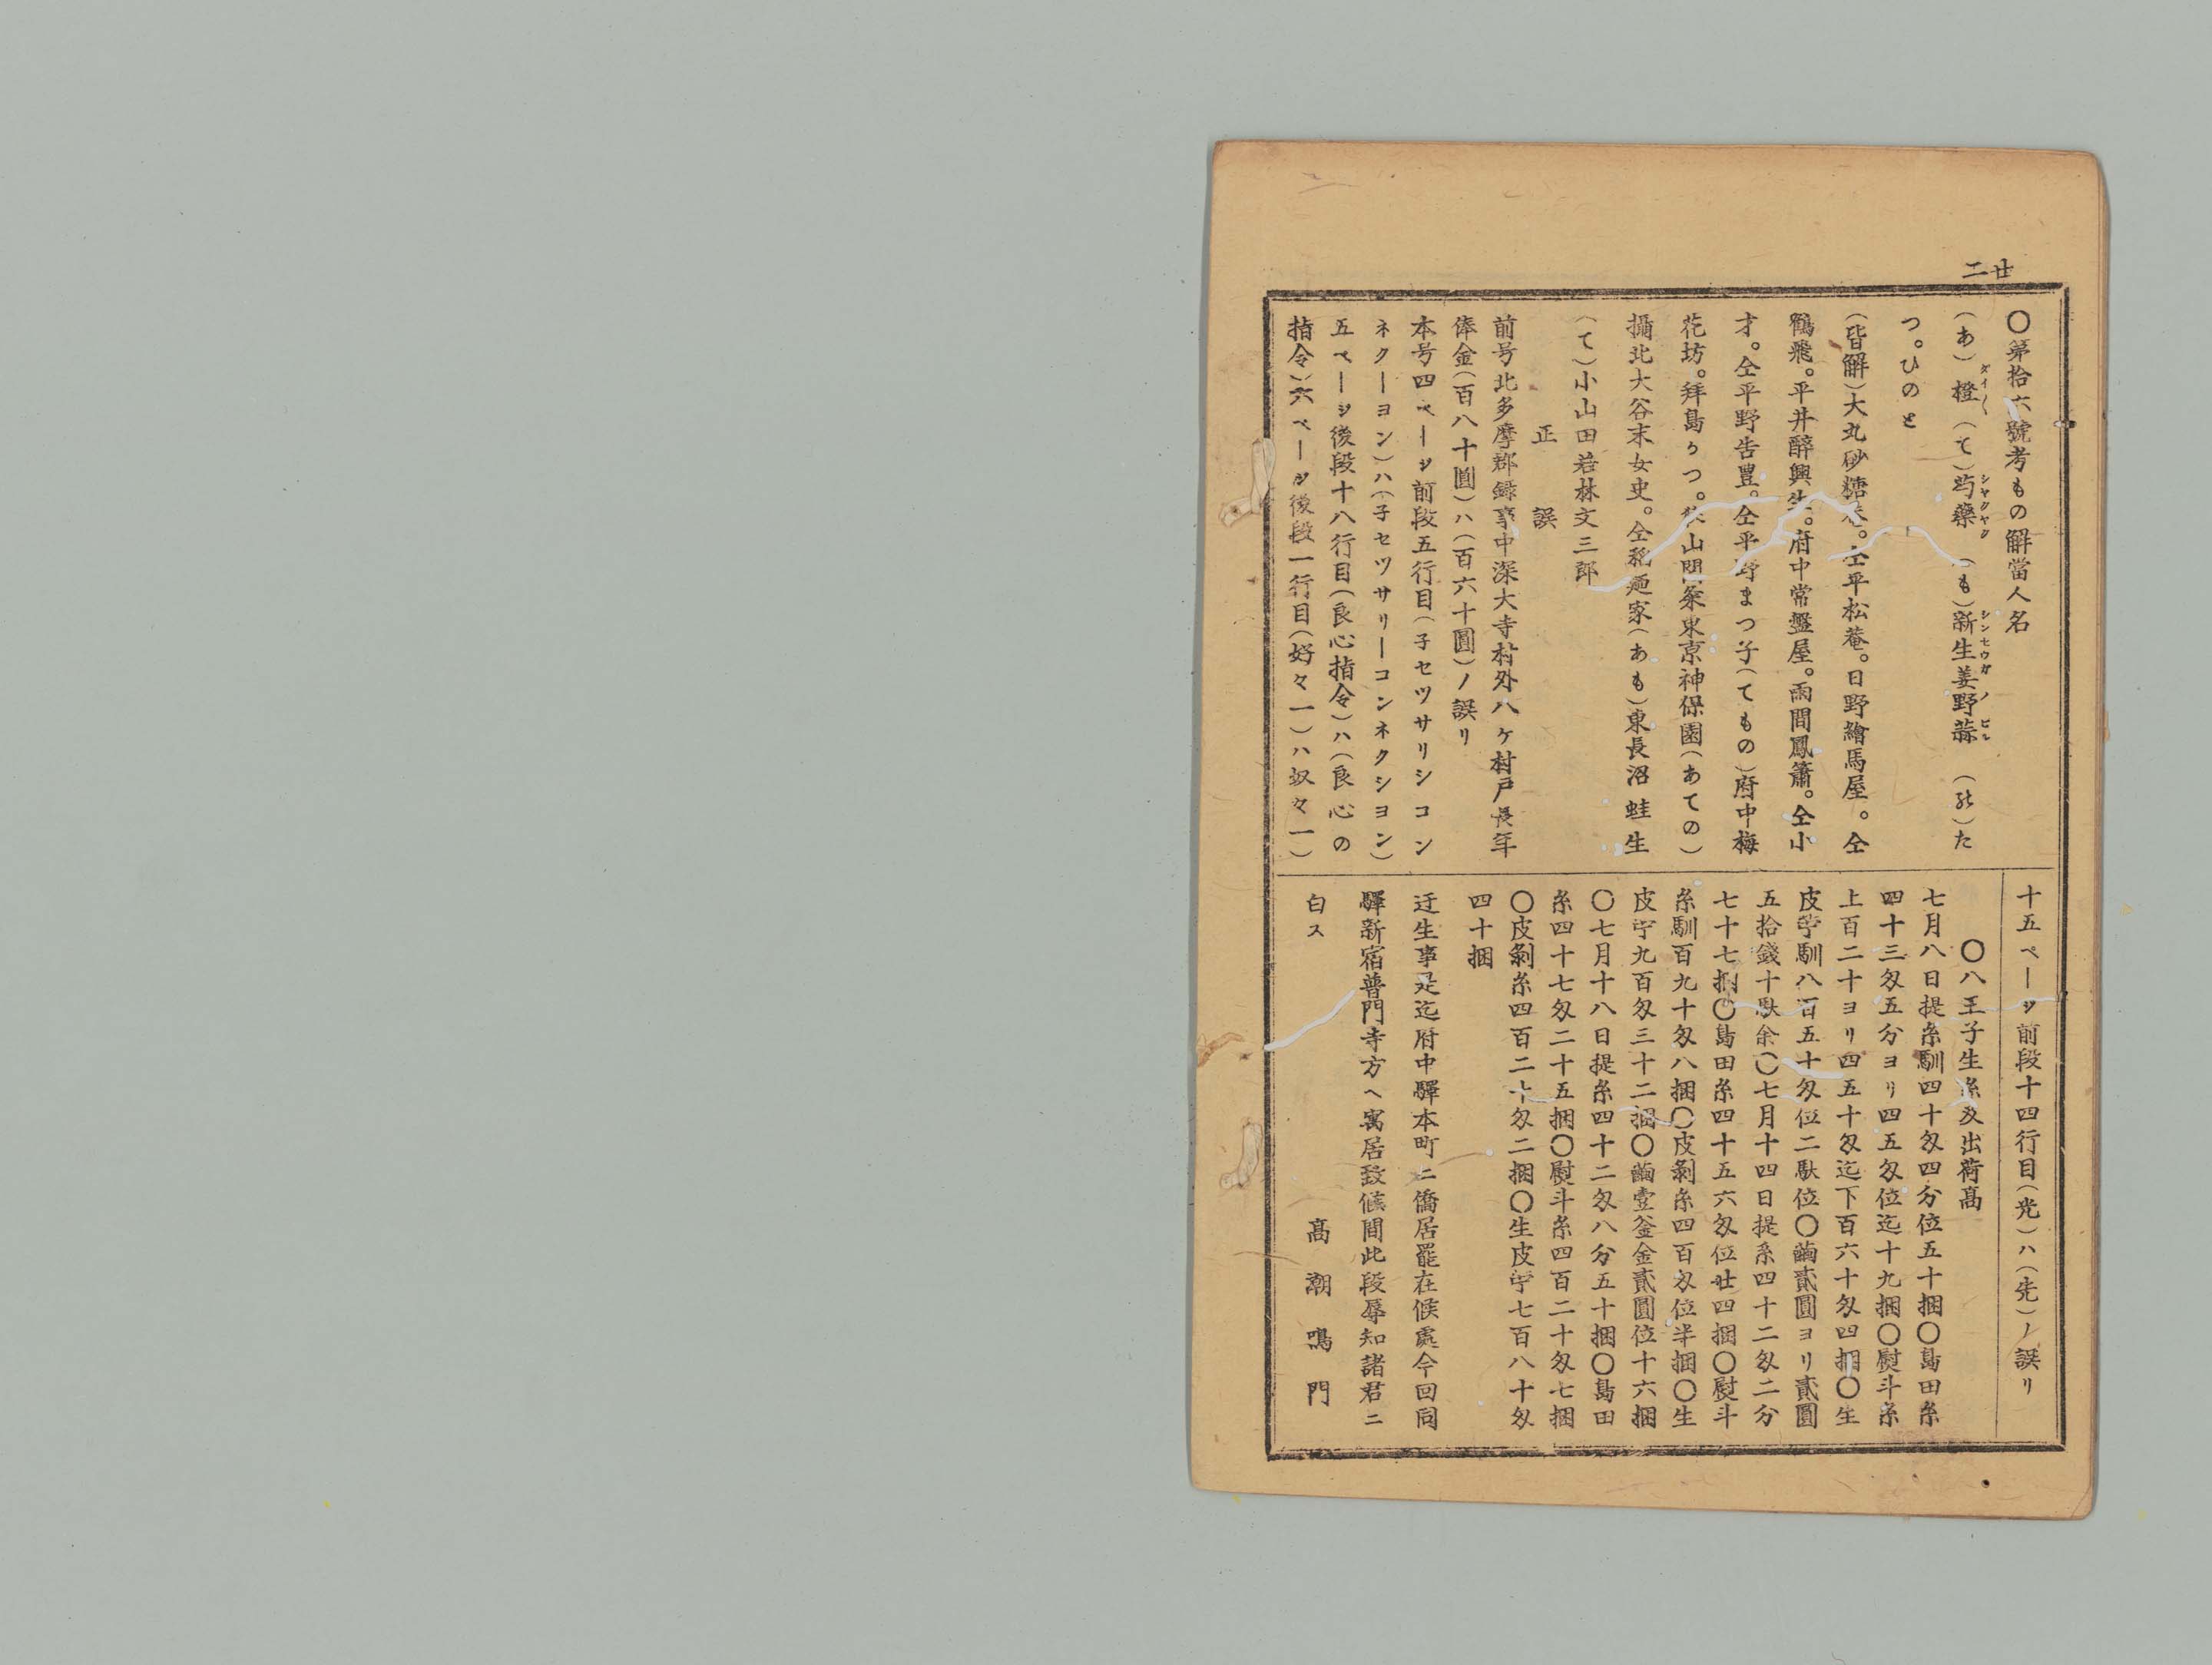 廿二
〇第拾六號考もの解當人名
(あ)橙(て)芍藥(も)新生姜野蒜(れ)た
つ。ひのと
(皆解)大丸砂糖。仝平松菴。日野繪馬屋。仝
鶴飛。平井醉興生。府中常盤屋。雨間鳳簫。仝小
才。仝平野告豊。仝平野まつ子(ても の)府中梅
花坊。拜島うつ。山間粂東京神保園(あての)
攝北大谷末女史。仝 家(あも)東長沼蛙生
(て)小山田若林文三郎
正誤
前号北多摩郡録事中深大寺村外八ヶ村戸長年
俸金(百八十圓)ハ(百六十圓)ノ誤リ
本号四ページ前段五行目(子セツサリシコン
ネクーヨン)ハ(子セツサリーコンネクシヨン)
五ページ後段十八行目(良心指令)ハ(良心の
指令)六ページ後段一行目(好々一)ハ奴々一)
十五ページ前段十四行目(光)ハ(先)ノ誤リ
〇八王子生糸及出荷髙
七月八日提糸馴四十匁四分位五十捆〇島田糸
四十三匁五分ヨリ四五匁位迄十九捆〇熨斗糸
上百二十ヨリ四五十匁迄下百六十匁四捆〇生
皮苧馴八百五十匁位二駄位〇繭貳圓ヨリ貳圓
五拾錢十駄余〇七月十四日提糸四十二匁二分
七十七捆〇島田糸四十五六匁位廿四捆〇熨斗
糸馴百九十匁八捆〇皮剝糸四百匁位半捆〇生
皮苧九百匁三十二捆〇繭壹釜金貳圓位十六捆
〇七月十八日提糸四十二匁八分五十捆〇島田
糸四十七匁二十五捆〇熨斗糸四百二十匁七捆
〇皮剝糸四百二十匁二捆〇生皮苧七百八十匁
四十捆
迂生事是迄府中驛本町ニ僑居罷在候處今回同
驛新宿普門寺方ヘ寓居致候間此段辱知諸君ニ
白ス
髙潮鳴門